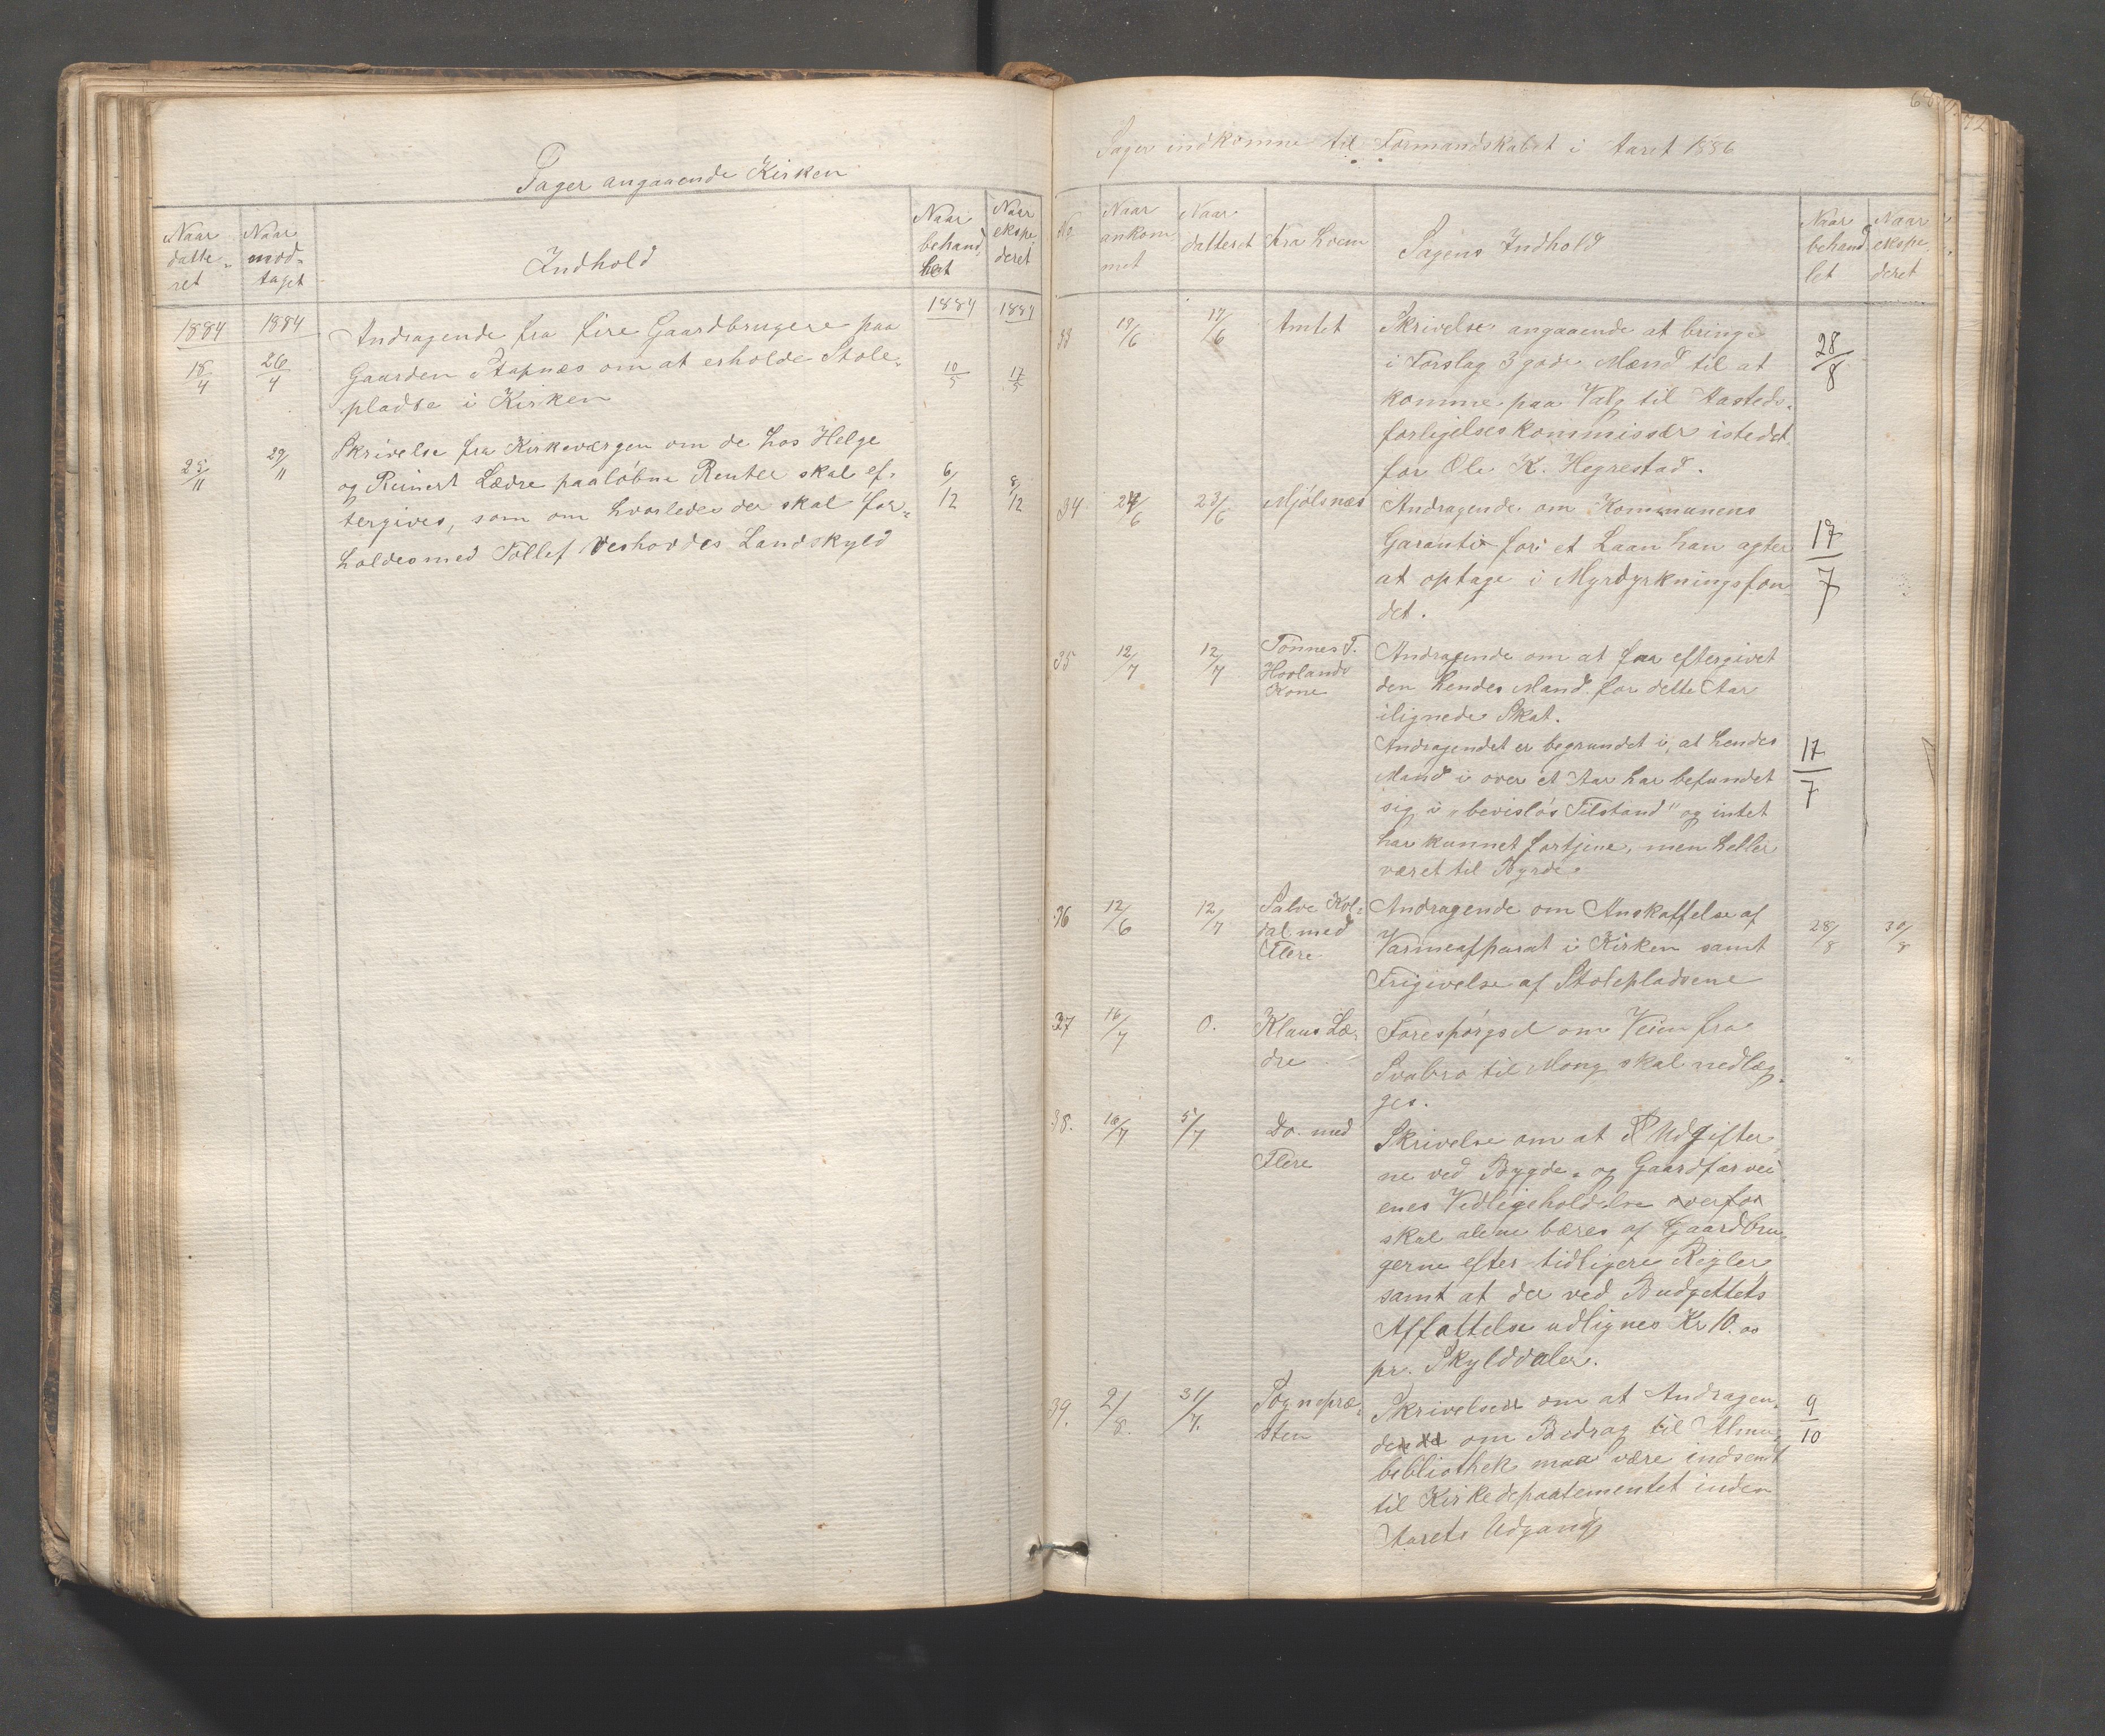 Sager angaaende Kirken
Naar datte- ret | Naar mod- taget | Indhold | Naar behand let | Naar ekspe- deret
1884 | 1884 | | 1884 | 1884
18/4 | 26/4 | Andragende fra fire Gaardbrugere paa | 10/5 | 17/5
Gaarden Stapnæs om at erholde Stole-
pladse i Kirken
25/11 | 29/11 | Skrivelse fra Kirkeværgen om de hos Helge | 6/12 | 8/12
og Reinert Lædre paaløbne Renter skal ef-
tergives, som om hvorledes der skal for-
holdes med Tollef Veshovdes Landskyld
Sager indkomne til Formandskabet i Aaret 1886
No | Naar ankom met | Naar datteret | Fra hvem | Sagens Indhold | Naar behand let | Naar ekspe- deret
33 | 19/6 | 17/6 | Amtet | Skrivelse angaaende at bringe | 28/8
i Forslag 3 gode Mænd til at
komme paa Valg til Aasteds-
forligelseskommissær istedet
for Ole K. Hegrestad.
34 | 24/6 | 23/6 | Mjølsnæs | Andragende om Kommunens | 17/7
Garanti for et Laan han agter
at optage i Myrdyrkningsfon
det.
35 | 12/7 | 12/7 | Tønnes T. | Andragende om at faa eftergivet
Hovlands | den hendes Mand for dette Aar
Kone | ilignede Skat.
Andragendet er begrundet i, at hendes | 17/7
Mand i over et Aar har befundet
sig i "bevisløs Tilstand" og intet
har kunnet fortjene, men heller
været til Byrde.
36 | 12/6 | 12/7 | Salve Kol- | Andragende om Anskaffelse af | 28/8 | 30/8
dal med | Varmeapparat i Kirken samt
Flere | Frigivelse af Stolepladsene
37 | 16/7 | 0. | Klaus Læ- | Forespørgsel om Veien fra
dre | Svabro til Mong skal nedlæg-
ges.
38. | 16/7 | 5/7 | Do. med | Skrivelse om at Udgifter
Flere | ne ved Bygde- og Gaardfarvei
enes Vedligeholdelse overfor
skal alene bæres af Gaardbru-
gerne efter tidligere Regler
samt at der ved Budgettets
Affattelse udlignes Kr 10.00
pr. Skylddaler.
39. | 2/8. | 31/7. | Sognepræ- | Skrivelse om at Andragen- | 9/10
sten | de om Bidrag til Almu-
bibliothek maa være indsendt
til Kirkedepartementet inden
Aarets Udgang